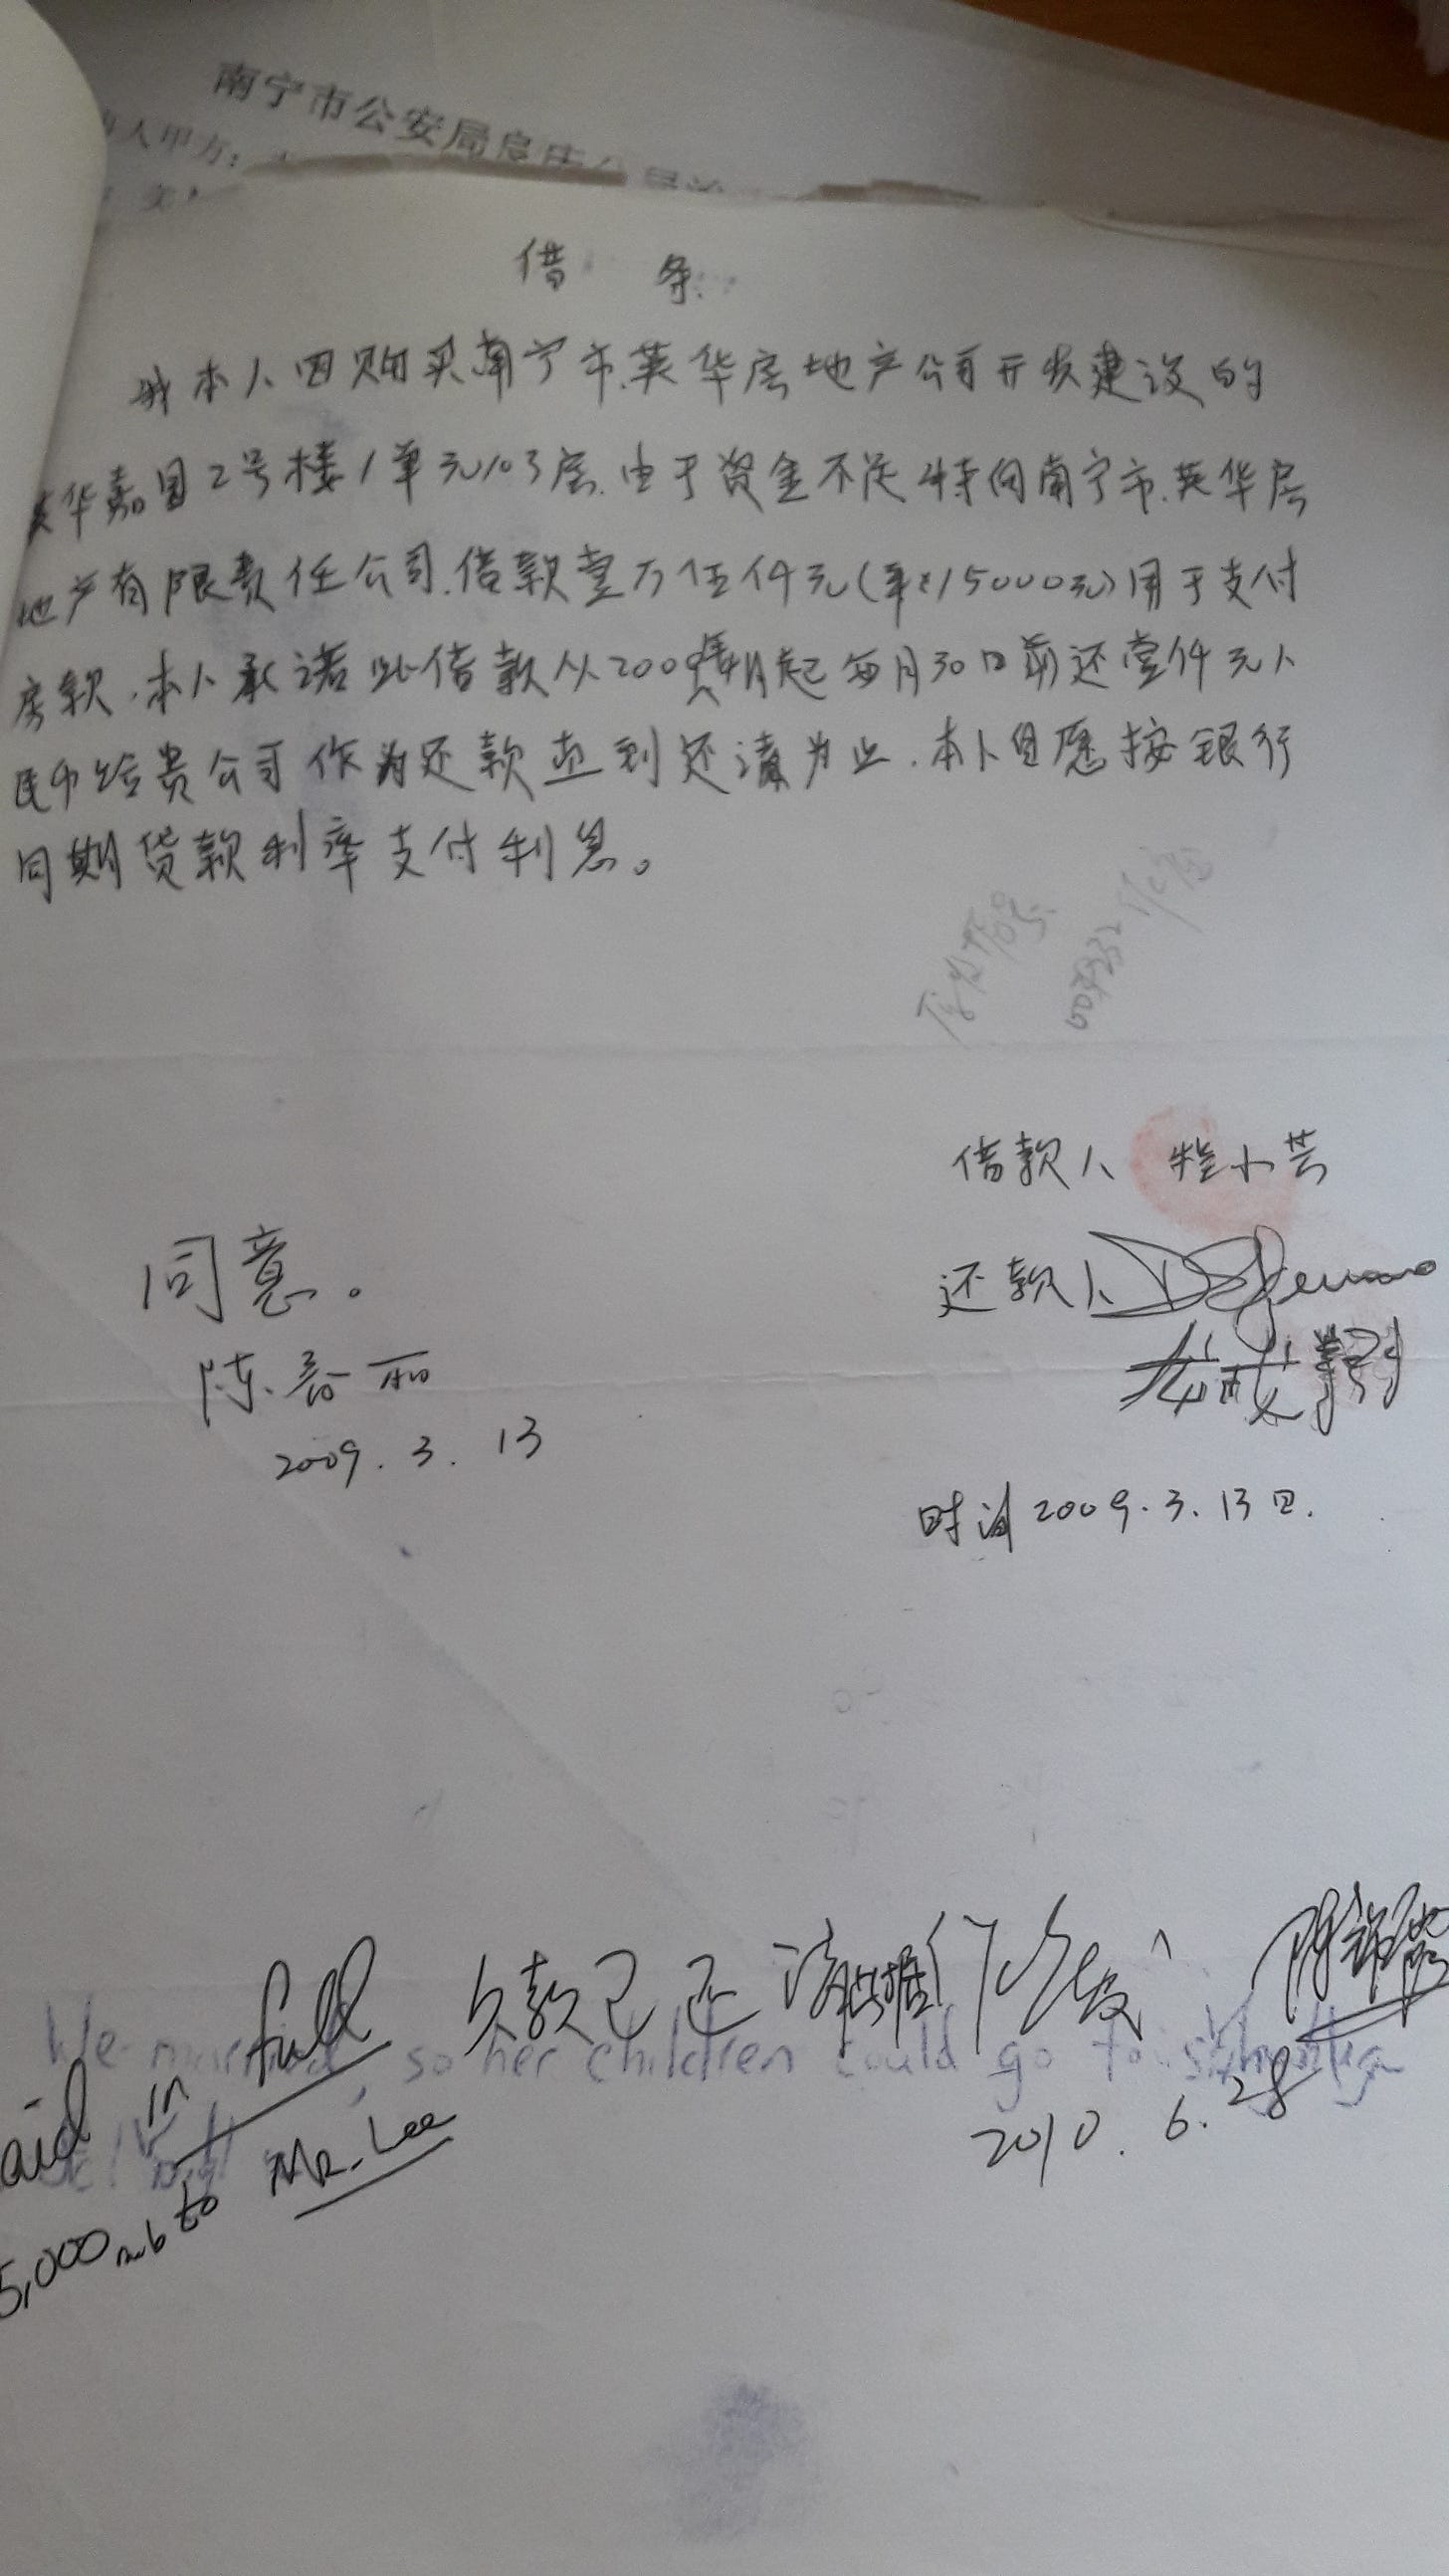 南宁市公安局
人甲方:
借 条
我本人因购买南宁市英华房地产公司开发建设的
英华嘉园2号楼1单元103房.由于资金不足特向南宁市英华房
地产有限责任公司.借款壹万伍仟元(¥:15000元)用于支付
房款.本人承诺此借款从2009年4月起每月30日前还壹仟元人
民币给贵公司作为还款直到还清为止.本人自愿按银行
同期贷款利率支付利息。
借款人 小芸
同意。
还款人
陈春丽
2009.3.13
时间2009.3.13日.
欠款已还清
We married, so her children could go to
aid in full
2010.6.28
5,000 rmb to Mr. Lee